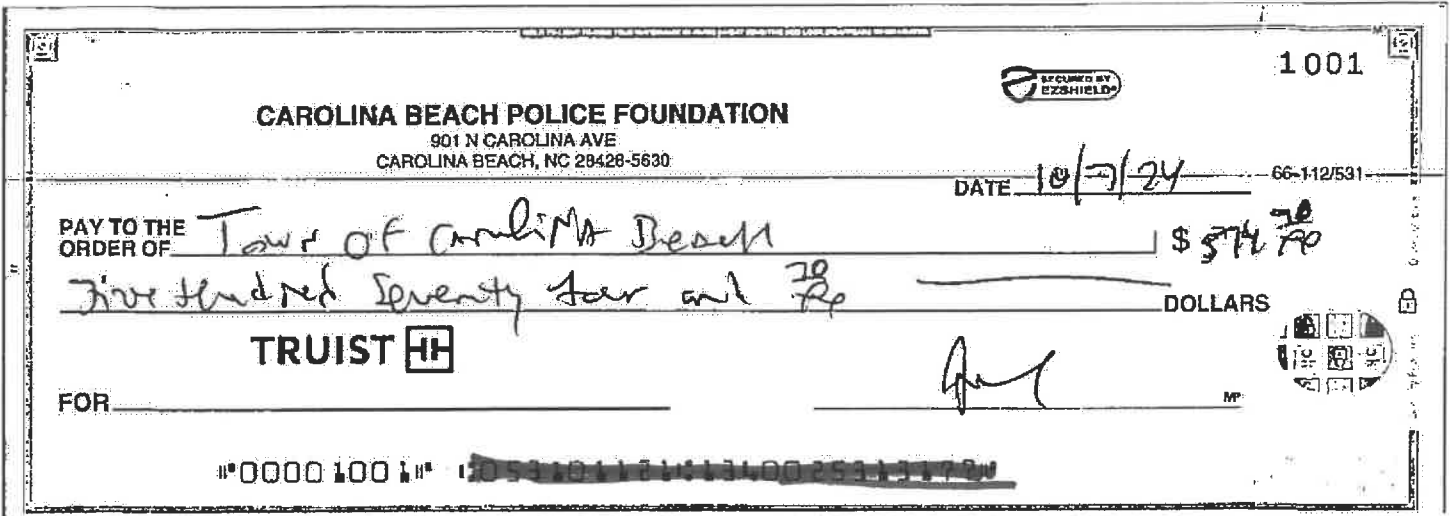 1001
SECURED BY
EZSHIELD
CAROLINA BEACH POLICE FOUNDATION
901 N CAROLINA AVE
CAROLINA BEACH, NC 28428-5630
DATE 10/7/24 66-112/531
PAY TO THE
ORDER OF Town OF Carolina Beach $ 574
Five Hundred Seventy four and DOLLARS
TRUIST
FOR
MP
⑈00001001⑈